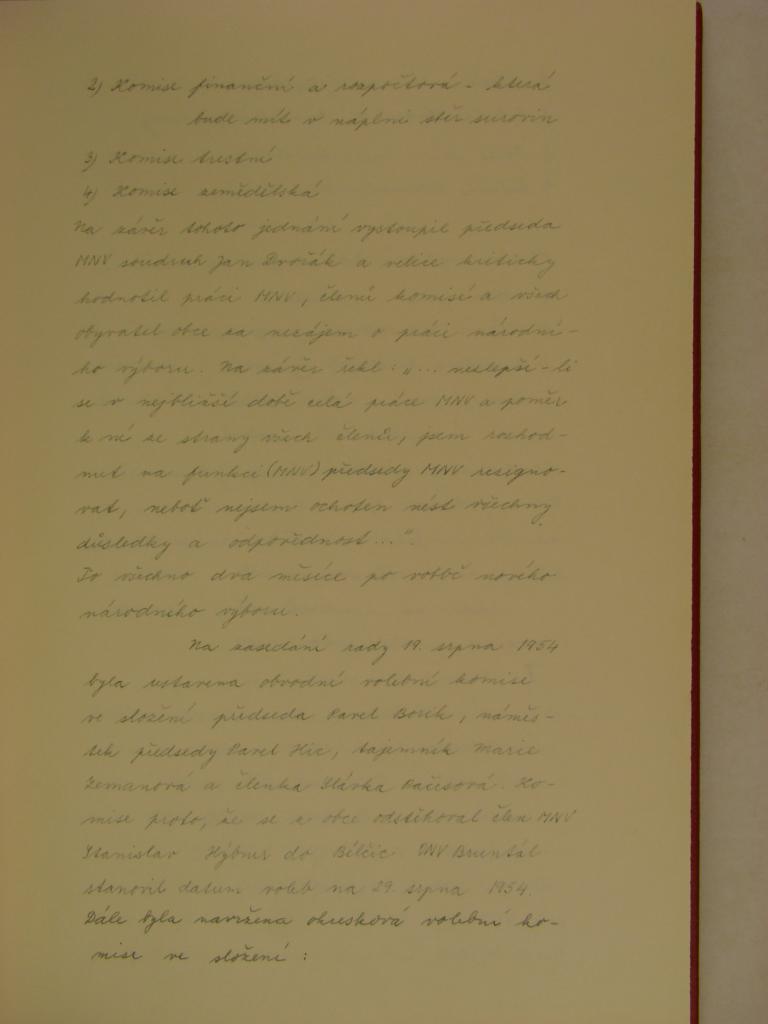 2) Komise finanční a rozpočtová - která
bude mít v náplni sběr surovin
3) Komise trestní
4) Komise zemědělská
Na závěr tohoto jednání vystoupil předseda
MNV soudruh Jan Dvořák a velice kriticky
hodnotil práci MNV, členů komisí a všech
obyvatel obce za nezájem o práci národní-
ho výboru. Na závěr řekl: „... nezlepší-li
se v nejbližší době celá práce MNV a poměr
k ní ze strany všech členů, jsem rozhod-
nut na funkci (MNV) předsedy MNV resigno-
vat, neboť nejsem ochoten nést všechny
důsledky a odpovědnost...".
To všechno dva měsíce po volbě nového
národního výboru.
Na zasedání rady 19. srpna 1954
byla ustavena obvodní volební komise
ve složení předseda Pavel Borik, náměs-
tek předsedy Pavel Hic, tajemník Marie
Zemanová a členka Slávka Ko-
mise proto, že se z obce odstěhoval člen MNV
Stanislav Hýbner do Bílčic. ONV Bruntál
stanovil datum voleb na 29. srpna 1954.
Dále byla navržena okrsková volební ko-
mise ve složení: